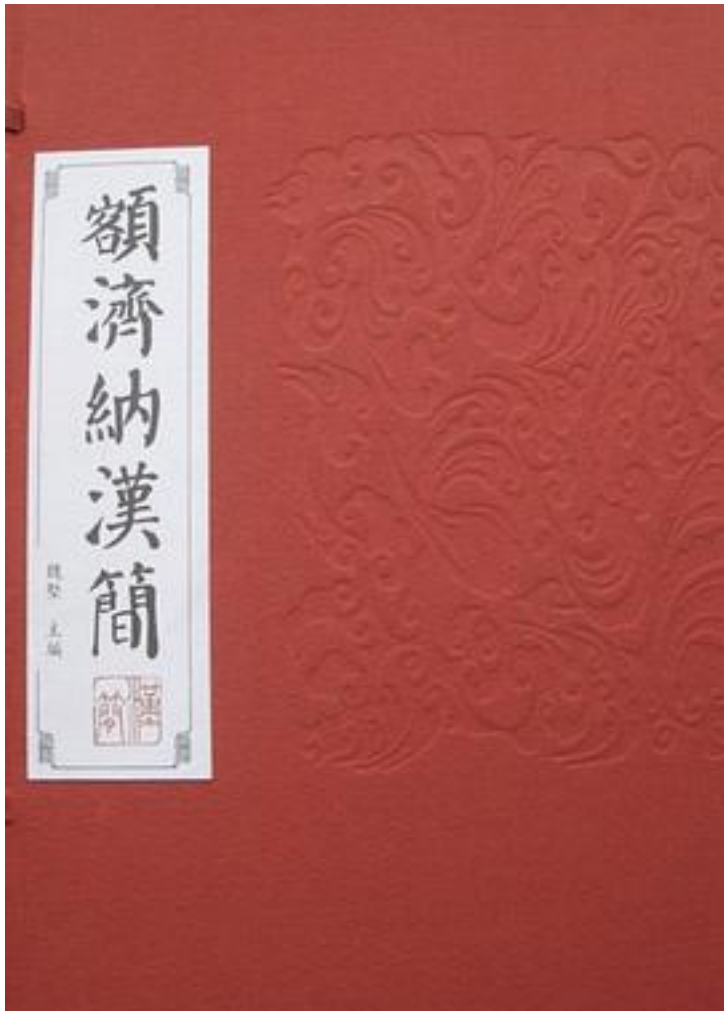 額濟納漢簡
魏堅 主編
漢簡